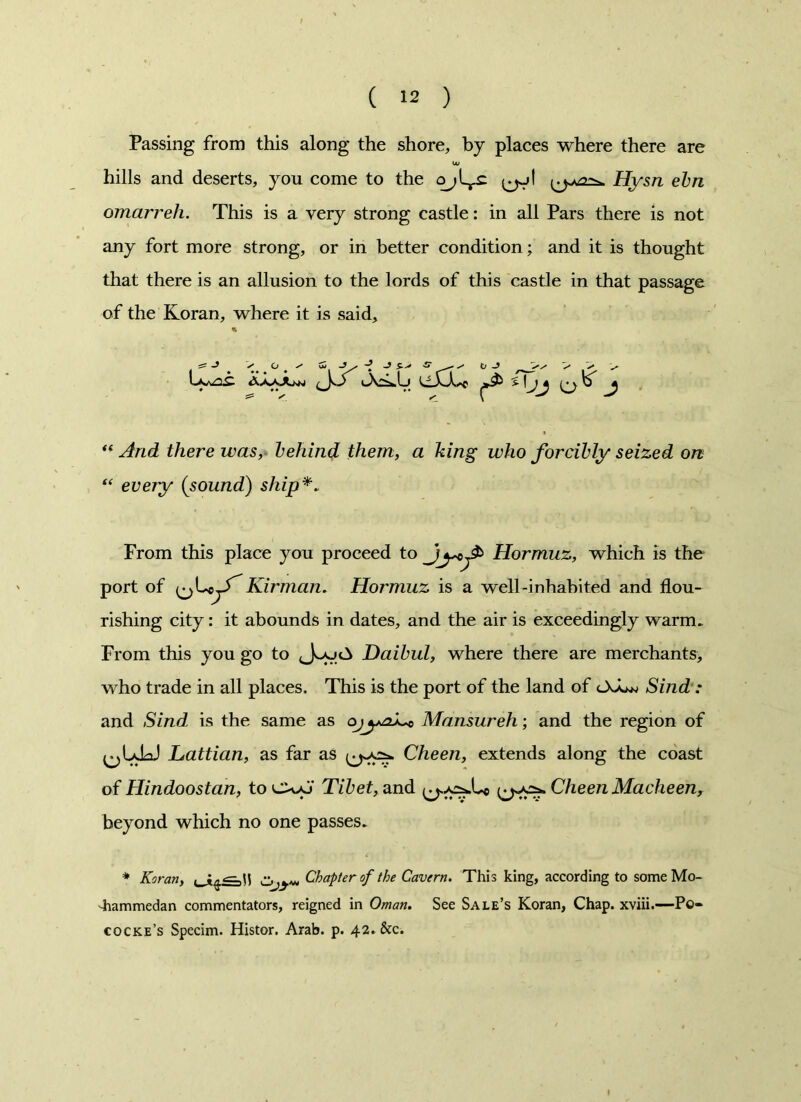 ( 12 )
Passing from this along the shore, by places where there are
hills and deserts, you come to the حصن ابن عمارّه Hysn ebn
omarreh. This is a very strong castle: in all Pars there is not
any fort more strong, or in better condition; and it is thought
that there is an allusion to the lords of this castle in that passage
of the Koran, where it is said,
وَ كَانَ وَرَآءَ هُم مَلِكٌ يَأْخُذُ كُلَّ سَفِينَةٍ غَصْبًا
“ And there was, behind them, a king who forcibly seized on
“ every (sound) ship*.
From this place you proceed to هرموز Hormuz, which is the
port of كرمان Kirman. Hormuz is a well-inhabited and flou-
rishing city: it abounds in dates, and the air is exceedingly warm.
From this you go to ديبل Daibul, where there are merchants,
who trade in all places. This is the port of the land of سند Sind:
and Sind is the same as منصوره Mansureh; and the region of
لطيان Lattian, as far as چين Cheen, extends along the coast
of Hindoostan, to تبت Tibet, and چين ماچين Cheen Macheen,
beyond which no one passes.
* Koran, سورة الكهف Chapter of the Cavern. This king, according to some Mo-
hammedan commentators, reigned in Oman. See Sale’s Koran, Chap. xviii.—Po-
cocke’s Specim. Histor. Arab. p. 42. &c.